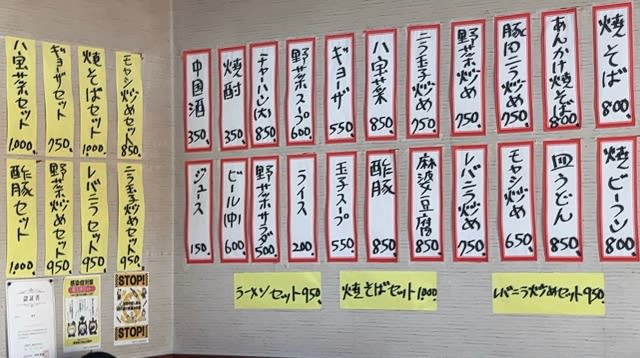 焼そば 800.
あんかけ焼そば 800.
豚肉ニラ炒め 750.
野菜炒め 750.
ニラ玉子炒め 750.
八宝菜 850
ギョーザ 550.
野菜スープ 600.
チャーハン(大) 850
焼酎 350.
中国酒 350.
焼ビーフン 800
皿うどん 850
モヤシ炒め 650.
レバニラ炒め 750
麻婆豆腐 850
酢豚 850
玉子スープ 550
ライス 200
野菜サラダ 500
ビール(中) 600
ジュース 150
モヤシ炒めセット 850
焼そばセット 1,000
ギョーザセット 750
八宝菜セット 1,000
ニラ玉子炒めセット 950
レバニラセット 950
野菜炒めセット 950
酢豚セット 1,000
ラーメンセット 950
焼きそばセット 1,000
レバニラ炒めセット 950
認証書
感染症対策
STOP!
STOP!